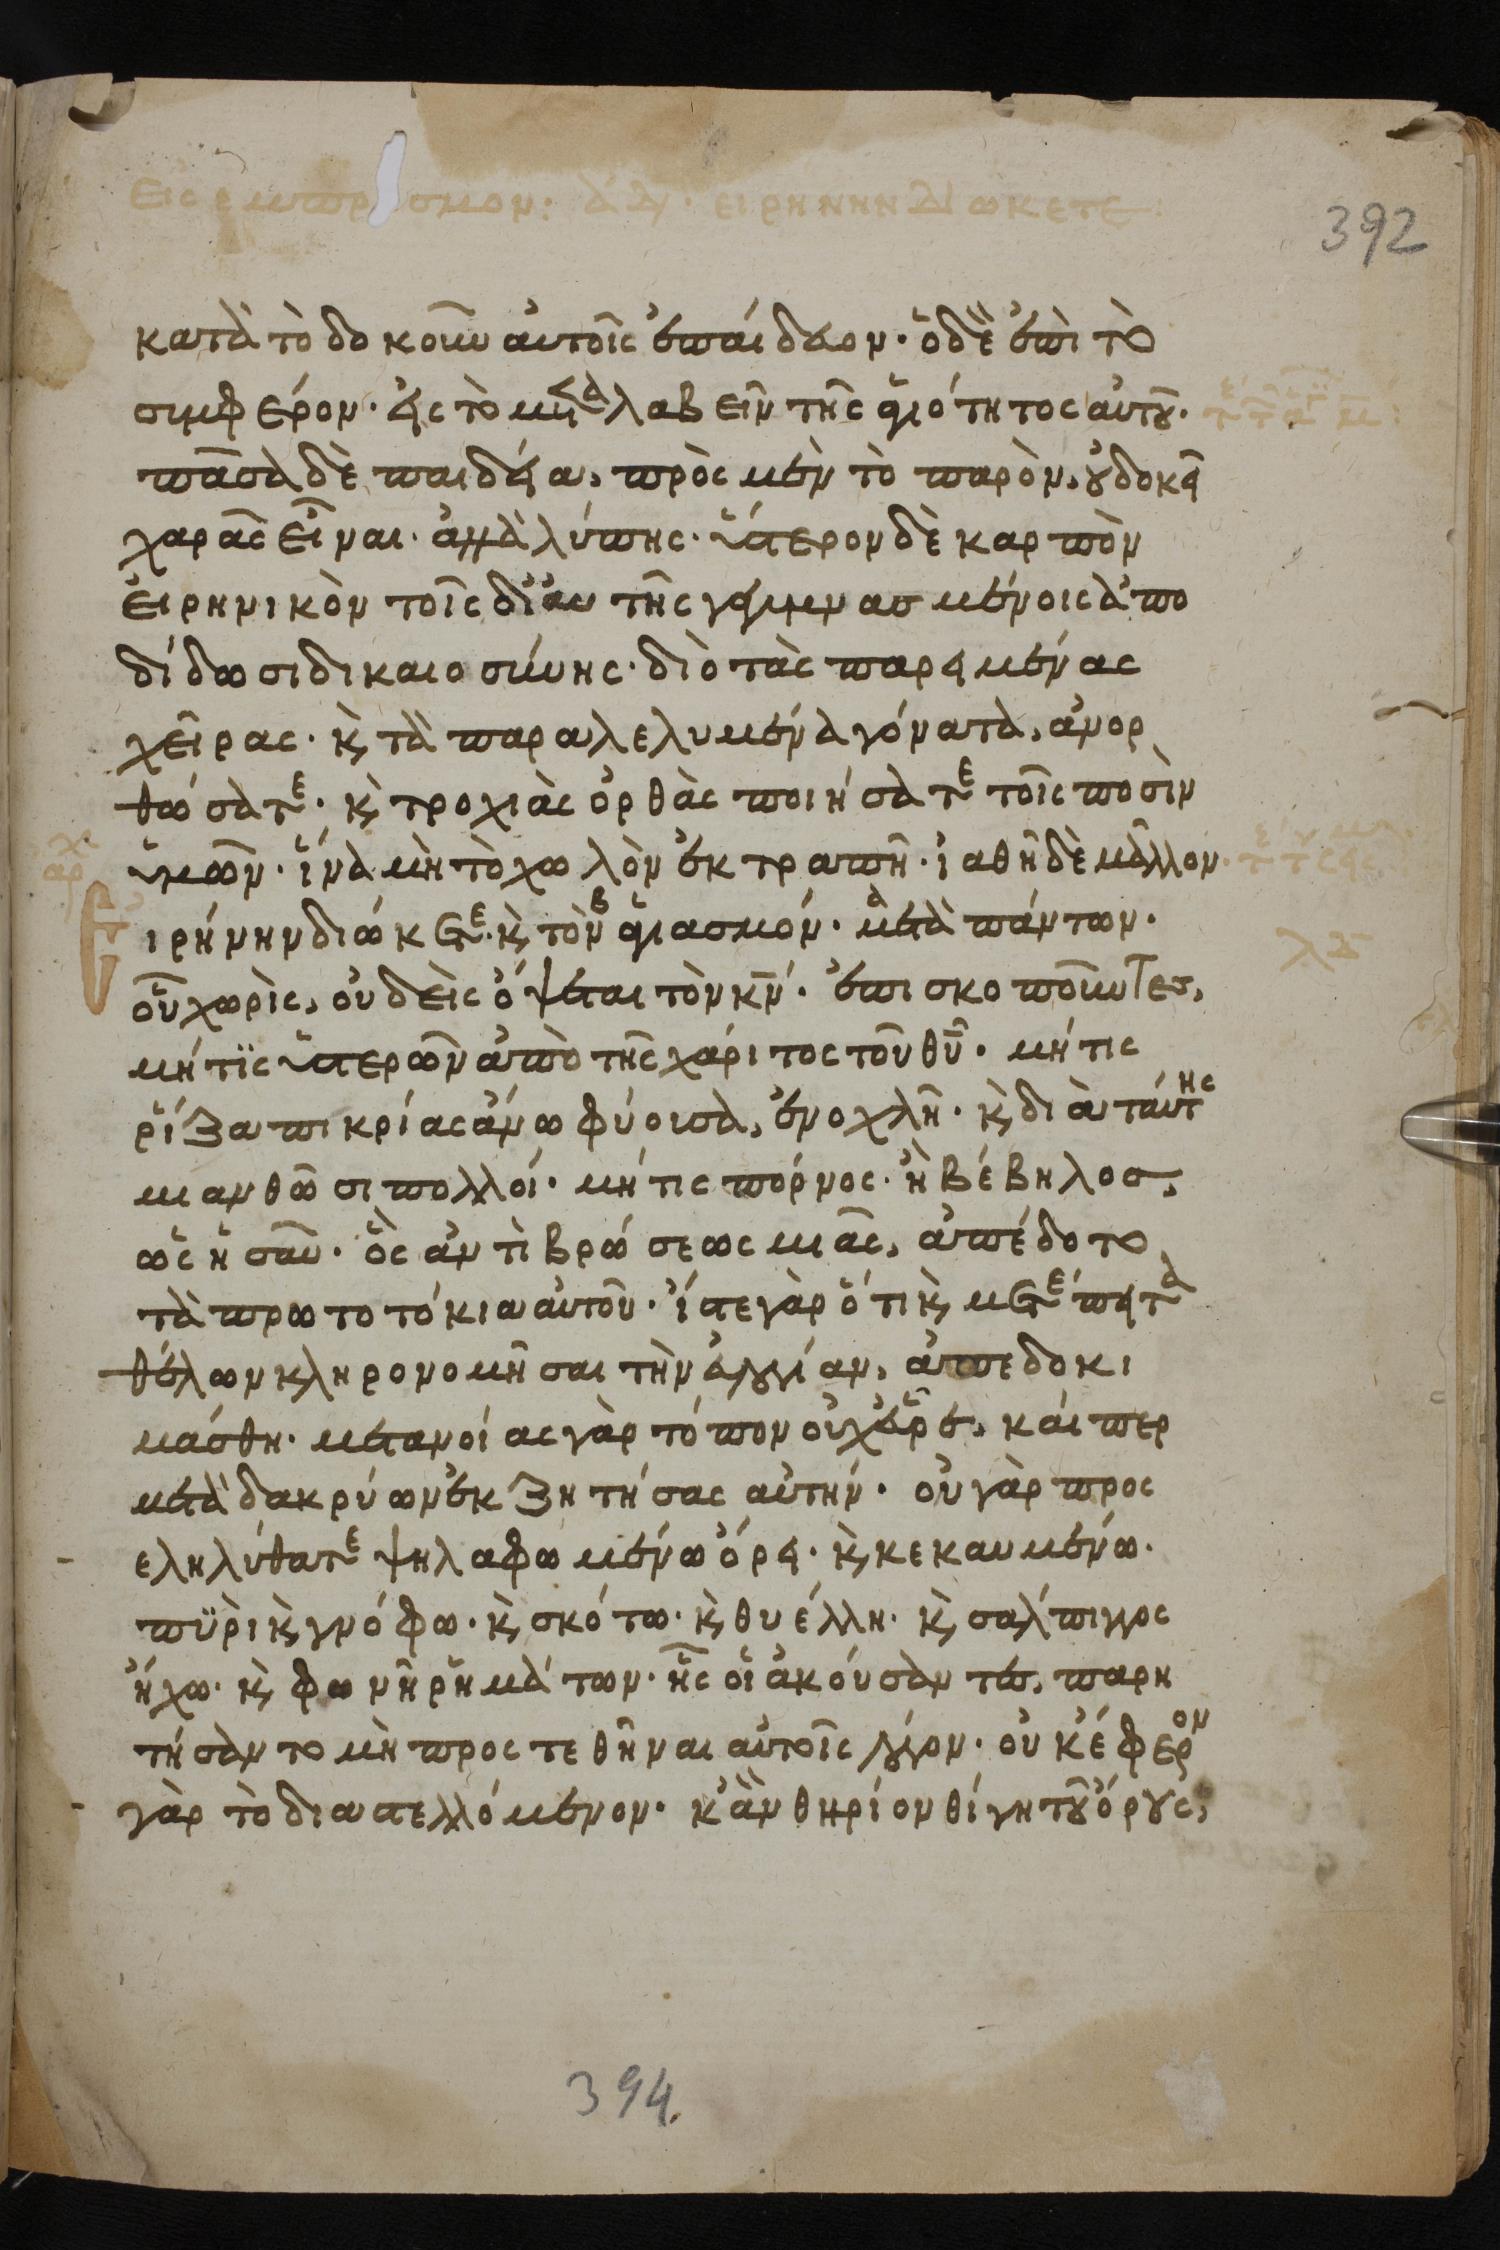 392
κατὰ τὸ δοκοῦν αὐτοῖς ἐπαίδευον· ὁ δὲ ἐπὶ τὸ
συμφέρον· εἰς τὸ μεταλαβεῖν τῆς ἁγιότητος αὐτοῦ·
πᾶσα δὲ παιδεία, πρὸς μὲν τὸ παρὸν, οὐ δοκεῖ
χαρᾶς εἶναι· ἀλλὰ λύπης· ὕστερον δὲ καρπὸν
εἰρηνικὸν τοῖς δι' αυτῆς γεγυμνασμένοις ἀπο
δίδωσι δικαιοσύνης· διὸ τὰς παρειμένας
χεῖρας· κ τὰ παραλελυμένα γόνατα, ἀνορ
θώσατε· κ τροχιὰς ὀρθὰς ποιήσατε τοῖς ποσὶν
ὑμῶν· ἵνα μὴ τὸ χωλὸν ἐκτραπῆ· ἰαθῆ δὲ μᾶλλον·
Ειρήνην διώκετε· κ τὸν ἁγιασμόν· μετὰ πάντων·
οὗ χωρὶς, οὐδεὶς ὄψεται τὸν κν· ἐπισκοποῦντες,
μή τις ὑστερῶν ἀπὸ τῆς χάριτος τοῦ θυ· μή τις
ῥίζα πικρίας ἄνω φύουσα, ἐνοχλῆ· κ διὰ ταύτης
μιανθῶσι πολλοί· μή τις πόρνος· ἢ βέβηλος,
ὡς ἠσαῦ· ὃς ἀντὶ βρώσεως μιᾶς, ἀπέδοτο
τὰ πρωτοτόκια αὐτοῦ· ἴστε γὰρ ὅτι κ μετέπειτα
θέλων κληρονομῆσαι τὴν εὐλογίαν, ἀπεδοκι
μάσθη· μετανοίας γὰρ τόπον οὐχ εὗρε, καίπερ
μετὰ δακρύων ἐκζητήσας αὐτήν· οὐ γὰρ προς
εληλύθατε ψηλαφωμένω ὄρει· κ κεκαυμένω·
πυρὶ κ γνόφω· κ σκότω· κ θυέλλη· κ σάλπιγγος
ἤχω· κ φωνῆ ῥημάτων· ἧς οἱ ἀκούσαντες, παρη
τήσαντο μὴ προστεθῆναι αὐτοῖς λόγον· οὐκ έφερον
γὰρ τὸ διαστελλόμενον· κἂν θηρίον θίγη τοῦ ὄρους,
394